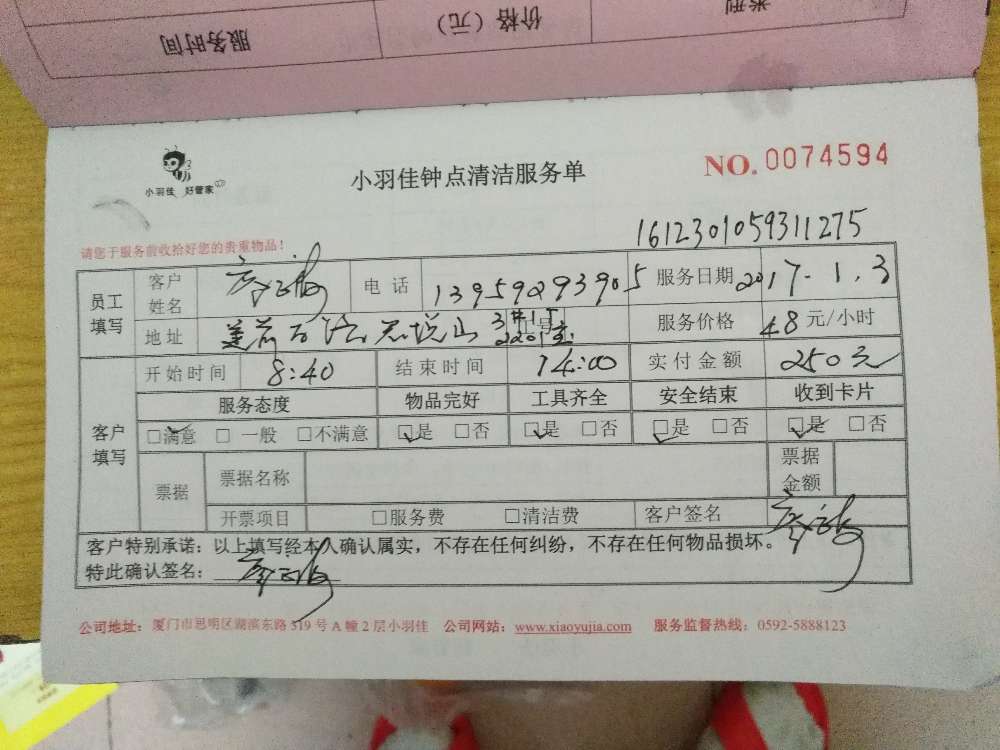 服务时间 价格（元） 类型
小羽佳 好管家
小羽佳钟点清洁服务单
NO. 0074594
1612301059311275
请您于服务前收拾好您的贵重物品！
员工填写
客户姓名 电话 13959293905 服务日期 2017-1.3
地址 服务价格 48 元/小时
客户填写
开始时间 8:40 结束时间 14:00 实付金额 250元
服务态度 物品完好 工具齐全 安全结束 收到卡片
□满意 □一般 □不满意 □是 □否 □是 □否 □是 □否 □是 □否
票据 票据名称 票据金额
开票项目 □服务费 □清洁费 客户签名
客户特别承诺：以上填写经本人确认属实，不存在任何纠纷，不存在任何物品损坏。
特此确认签名：
公司地址：厦门市思明区湖滨东路 319 号 A 幢 2 层小羽佳 公司网站：www.xiaoyujia.com 服务监督热线：0592-5888123